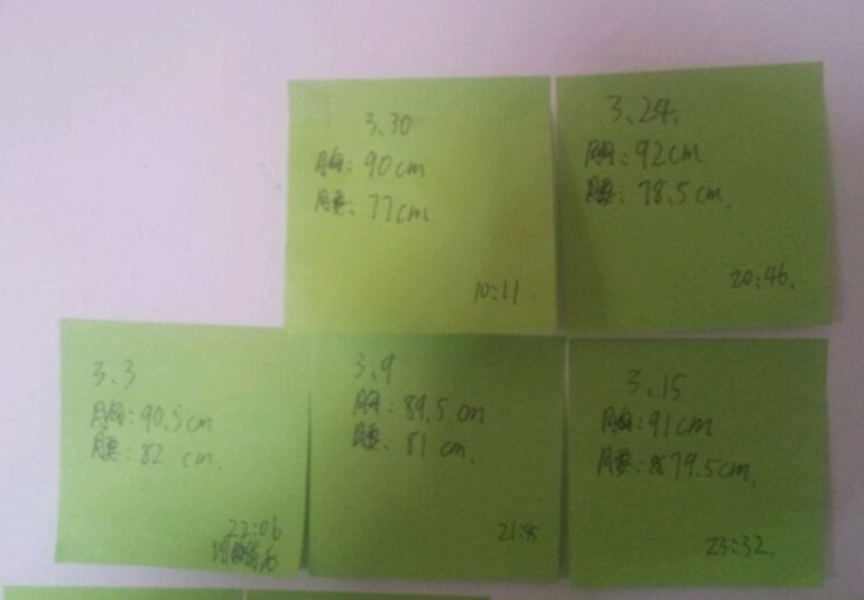 3、30
胸：90cm
腰：77cm
10:11
3、24、
胸：92cm
腰：78.5cm、
20:46、
3、3
胸：90.5cm
腰：82 cm、
22:06
3、9
胸：89.5cm
腰：81 cm、
3、15
胸：91cm
腰：79.5cm、
23:32、